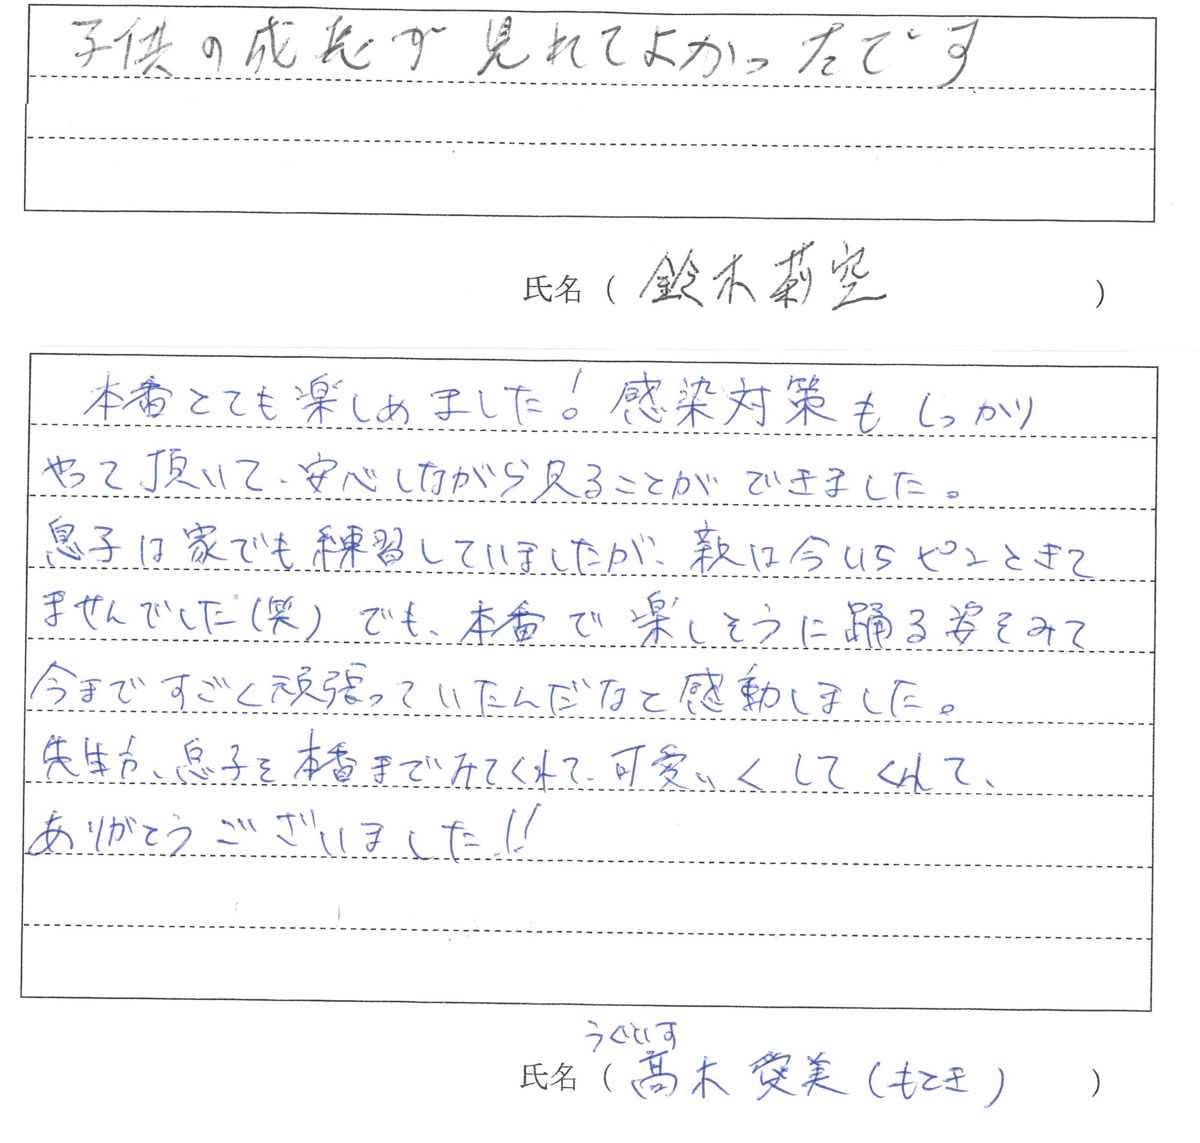 子供の成長が見れてよかったです
氏名（ 鈴木莉空 ）
本番とても楽しめました！感染対策もしっかり
やって頂いて、安心しながら見ることができました。
息子は家でも練習していましたが、親は今いちピンときて
ませんでした（笑）でも、本番で楽しそうに踊る姿をみて
今まですごく頑張っていたんだなと感動しました。
先生方、息子を本番までみてくれて、可愛いくしてくれて、
ありがとうございました!!
うぐいす
氏名（ 髙木愛美（もとき） ）